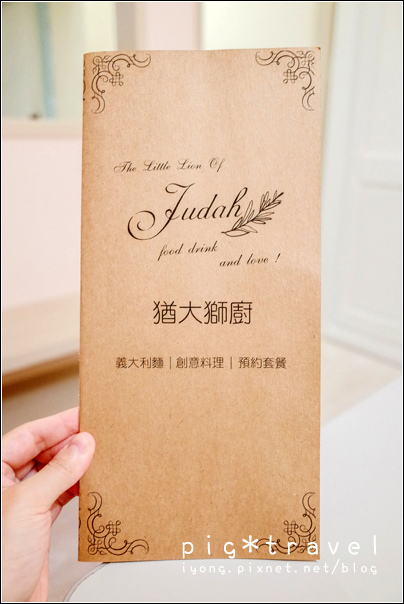 The Little Lion Of
Judah
food drink
and love !
猶大獅廚
義大利麵｜創意料理｜預約套餐
pig*travel
iyong.pixnet.net/blog